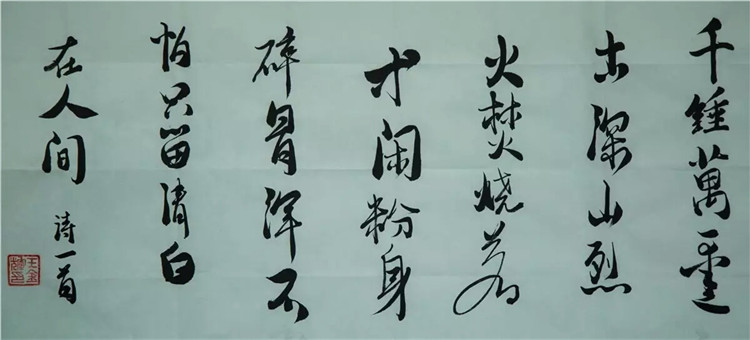 千錘萬
出深山烈
火焚烧若
等闲粉身
碎骨浑不
怕只留清白
在人间
诗一首